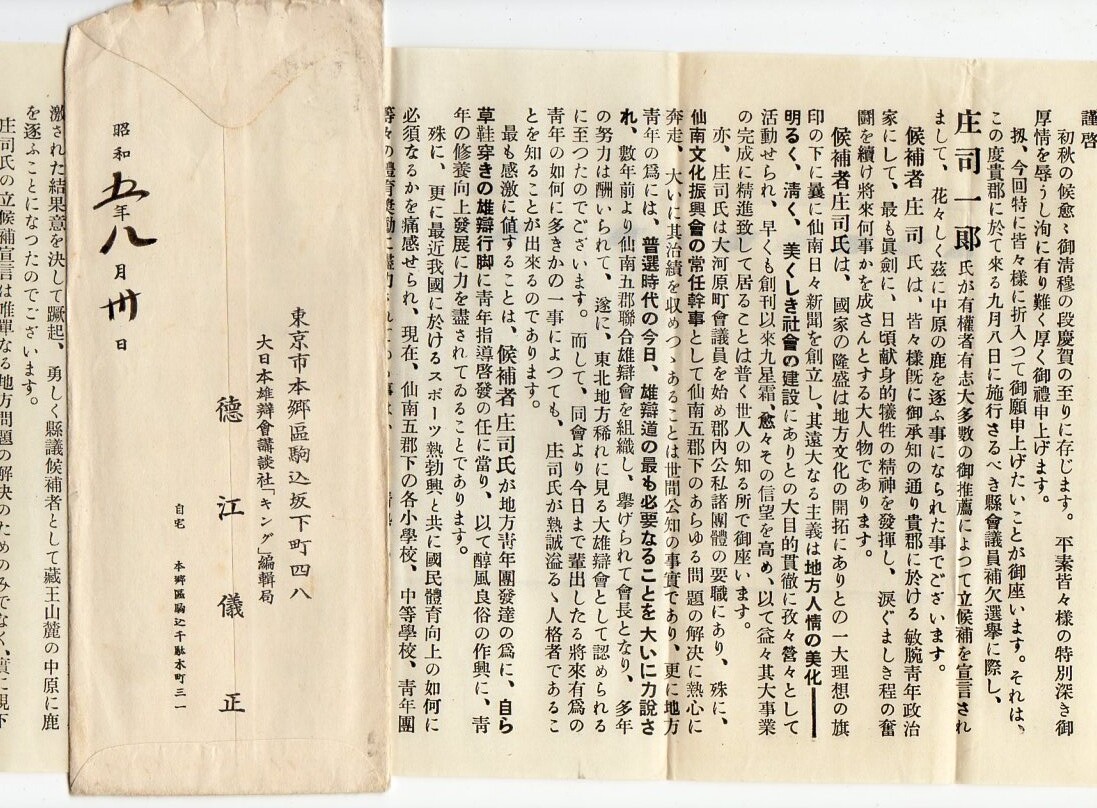 謹啓
初秋の候愈〻御淸穆の段慶賀の至りに存じます。平素皆々樣の特別深き御
厚情を辱うし洵に有り難く厚く御禮申上げます。
扨、今回特に皆々樣に折入つて御願申上げたいことが御座います。それは、
この度貴郡に於て來る九月八日に施行さるべき縣會議員補欠選擧に際し、
庄司一郞氏が有權者有志大多數の御推薦によつて立候補を宣言され
まして、花々しく玆に中原の鹿を逐ふ事になられた事でございます。
候補者庄司氏は、皆々樣旣に御承知の通り貴郡に於ける敏腕靑年政治
家にして、最も眞劍に、日頃献身的犠牲の精神を發揮し、淚ぐましき程の奮
鬪を續け將來何事かを成さんとする大人物であります。
候補者庄司氏は、國家の隆盛は地方文化の開拓にありとの一大理想の旗
印の下に曩に仙南日々新聞を創立し、其遠大なる主義は地方人情の美化――
明るく、淸く、美くしき社會の建設にありとの大目的貫徹に孜々營々として
活動せられ、早くも創刊以來九星霜、愈々その信望を高め、以て益々其大事業
の完成に精進致して居ることは普く世人の知る所で御座います。
亦、庄司氏は大河原町會議員を始め郡內公私諸團體の要職にあり、殊に、
仙南文化振興會の常任幹事として仙南五郡下のあらゆる問題の解決に熱心に
奔走、大いに其治績を収めつゝあることは世間公知の事實であり、更に地方
靑年の爲には、普選時代の今日、雄辯道の最も必要なることを大いに力說さ
れ、數年前より仙南五郡聯合雄辯會を組織し、擧げられて會長となり、多年
の努力は酬いられて、遂に、東北地方稀れに見る大雄辯會として認められる
に至つたのでございます。而して、同會より今日まで輩出したる將來有爲の
靑年の如何に多きかの一事によつても、庄司氏が熱誠溢るゝ人格者であるこ
とを知ることが出來るのであります。
最も感激に値することは、候補者庄司氏が地方靑年團發達の爲に、自ら
草鞋穿きの雄辯行脚に靑年指導啓發の任に當り、以て醇風良俗の作興に、靑
年の修養向上發展に力を盡されてゐることであります。
殊に、更に最近我國に於けるスポーツ熱勃興と共に國民體育向上の如何に
必須なるかを痛感せられ、現在、仙南五郡下の各小學校、中等學校、靑年團
等々の體育奬勵に盡力
東京市本鄕區駒込坂下町四八
大日本雄辯會講談社「キング」編輯局
德江儀正
自宅 本鄕區駒込千駄木町三一
昭和五年八月卅日
激された結果意を決して蹶起、勇しく縣議候補者として藏王山麓の中原に鹿
を逐ふことになつたのでございます。
庄司氏の立候補宣言は唯單なる地方問題の解決のためのみでなく、實に現下